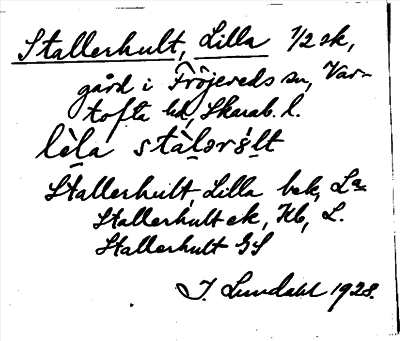 Stallerhult, Lilla 1/2 sk,
gård i Fröjereds sn, Var-
tofta hd, Skarab. l.
lèla stàlərs̀lt
Stallerhult, Lilla bek, La
Stallerhult ek, Kb, L.
Stallerhult GS
J. Lundahl 1928.